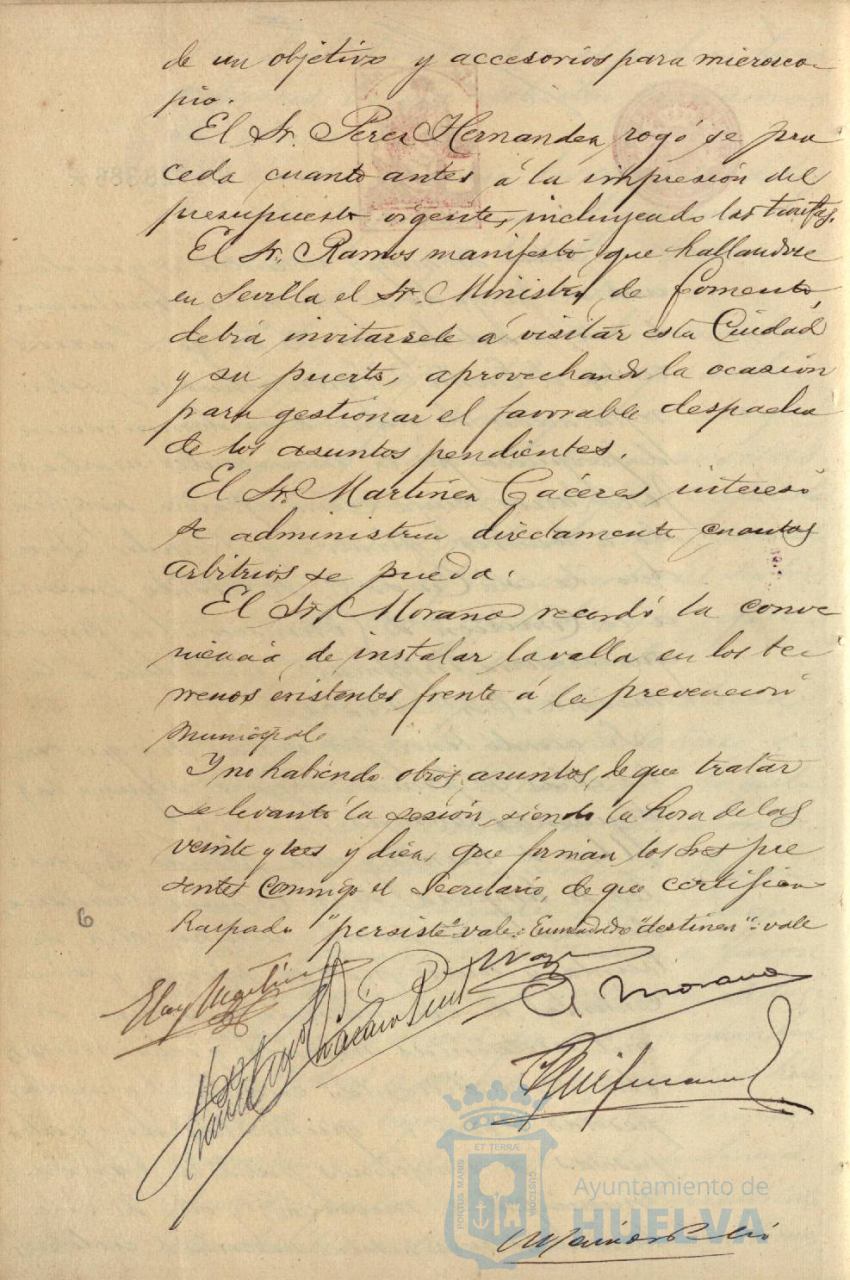 de un objetivo y accesorios para microsco-
pio.
El Sr. Perez Hernandez, rogó se pro
ceda cuanto antes á la impresión del
presupuesto vigente, incluyendo las tarifas.
El Sr. Ramos manifestó que hallandose
en Sevilla el Sr. Ministro de Fomento,
debia invitarsele á visitar esta Ciudad
y su puerto, aprovechando la ocasión
para gestionar el favorable despacho
de los asuntos pendientes.
El Sr. Martinez Cáceres interesó
se administren directamente cuantos
arbitrios se pueda.
El Sr. Morano recordó la conve
niencia de instalar la valla en los te
rrenos existentes frente á la prevención
municipal.
Y no habiendo otros asuntos de que tratar
se levantó la sesión, siendo la hora de las
veinte y tres y diez, que firman los Sres pre
sentes conmigo el Secretario, de que certifico=
Raspado "persiste" vale= Enmendado "destinen": vale
6
Eloy Martin
A. Morano
ET TERRÆ
PORTUS MARIS
CUSTODIA
Ayuntamiento de
HUELVA